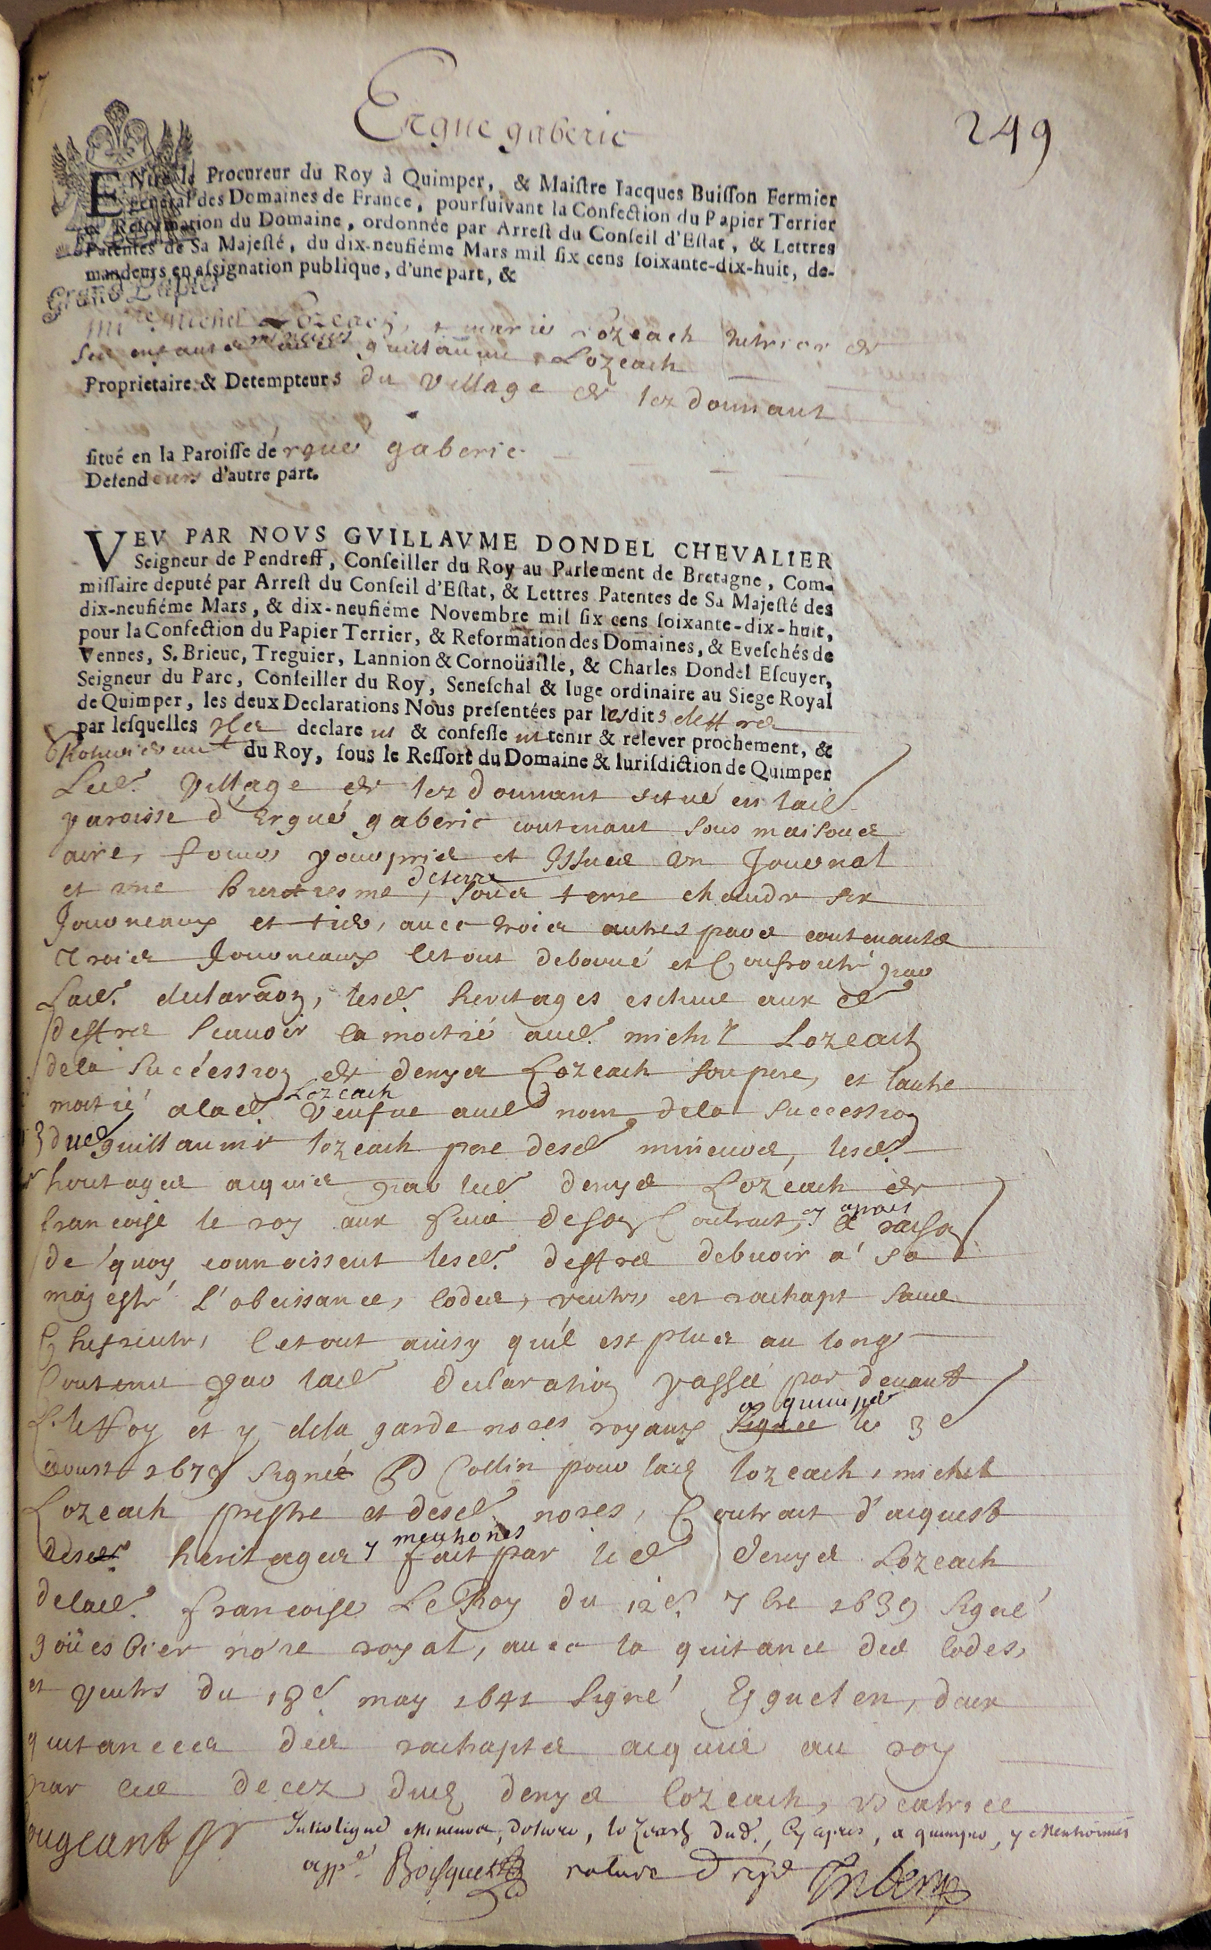 Ergue gaberic
249
ENtre le Procureur du Roy à Quimper, & Maistre Iacques Buisson Fermier
general des Domaines de France, poursuivant la Confection du Papier Terrier
& Reformation du Domaine, ordonnée par Arrest du Conseil d'Estat, & Lettres
Patentes de Sa Majesté, du dix-neufiéme Mars mil six cens soixante-dix-huit, de-
mandeurs en assignation publique, d'une part, &
Grand Papier
Michel Lozeach, et marie Lozeach tutrice de
ses enfants mineurs guillaume Lozeach
Proprietaire & Detempteurs du village de lezdounant
situé en la Paroisse de rgue gaberic
Defendeurs d'autre part.
VEU PAR NOVS GVILLAVME DONDEL CHEVALIER
Seigneur de Pendreff, Conseiller du Roy au Parlement de Bretagne, Com-
missaire deputé par Arrest du Conseil d'Estat, & Lettres Patentes de Sa Majesté des
dix-neufiéme Mars, & dix-neufiéme Novembre mil six cens soixante-dix-huit,
pour la Confection du Papier Terrier, & Reformation des Domaines, & Eveschés de
Vennes, S. Brieuc, Treguier, Lannion & Cornoüaille, & Charles Dondel Escuyer,
Seigneur du Parc, Conseiller du Roy, Seneschal & Iuge ordinaire au Siege Royal
de Quimper, les deux Declarations Nous presentées par lesdits deffrs
par lesquelles Ils declarent & confessent tenir & relever prochement, &
Roturierement du Roy, sous le Ressort du Domaine & Iurisdiction de Quimper
Led. village de lezdounant situé en lad.
paroisse d'Ergué gaberic contenant sous maisons
aire, et Issues un Journal
et une , soubs terre chaude six
Journeaux et tiers, avec trois autres parcs contenants
Trois Journeaux le tout deborné et Confronté par
Lad. declaraon, lesd heritages escheus aux d
deffrs scavoir la moitié aud. michel Lozeach
dela succession de denys Lozeach son pere, et l'autre
moitié a lad Lozeach veufue aud nom dela succession
dud guillaume lozeach pere desd mineurs, lesd.
heritages acquis par led denys Lozeach de
francoise le roy aux fins de son Contrat, cy apres a raison
de quoy connoissent lesd. deffrs debvoir a sa
majesté l'obeissance, lodes, ventes et rachapt sans
Chefrente, le tout ainsy quil est plus au long
Contenu par lad declaration passée par devant
et y dela garde nores royaux a quimper le 3e
1679 signée Collin pour lad lozeach, michel
Lozeach prestre et desd nores, Contrat d'acquest
desd heritages y mentionés fait par led denys Lozeach
delad. francoise Le Roy du 12e. 7bre 1639 signé
nore royal, avec la quitance des lodes
et ventes du 18e may 1641 signé , deux
quitances des rachapts acquis au roy
par led decez dud denys lozeach,
Interligne mineurs, deterre, lozeach dud., Cy apres, a quimper, y Mentionnés
app. Bosquet roture